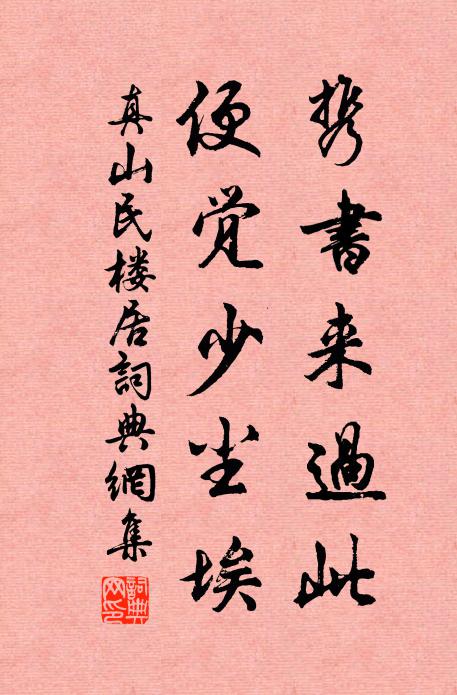 携書来過此
便覚少尘埃
真山民楼居詞典網集
詞典网印